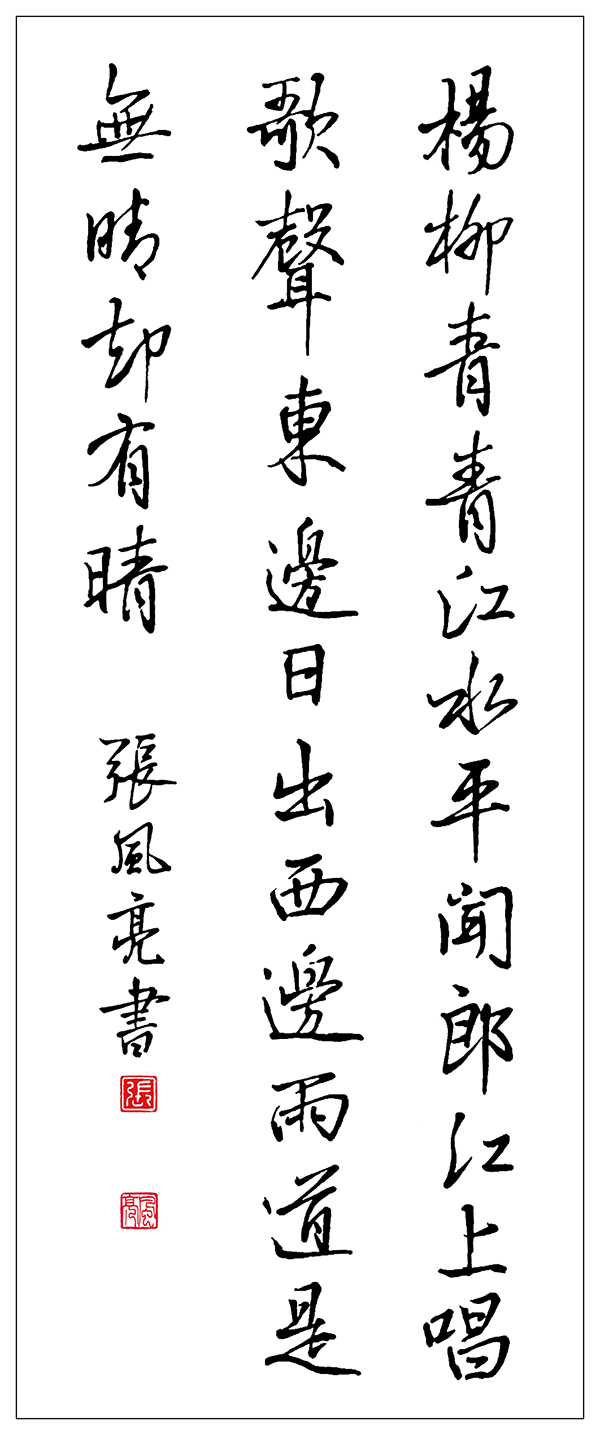 楊柳青青江水平聞郎江上唱
歌聲東邊日出西邊雨道是
無晴却有晴
張風亮書
張
風亮